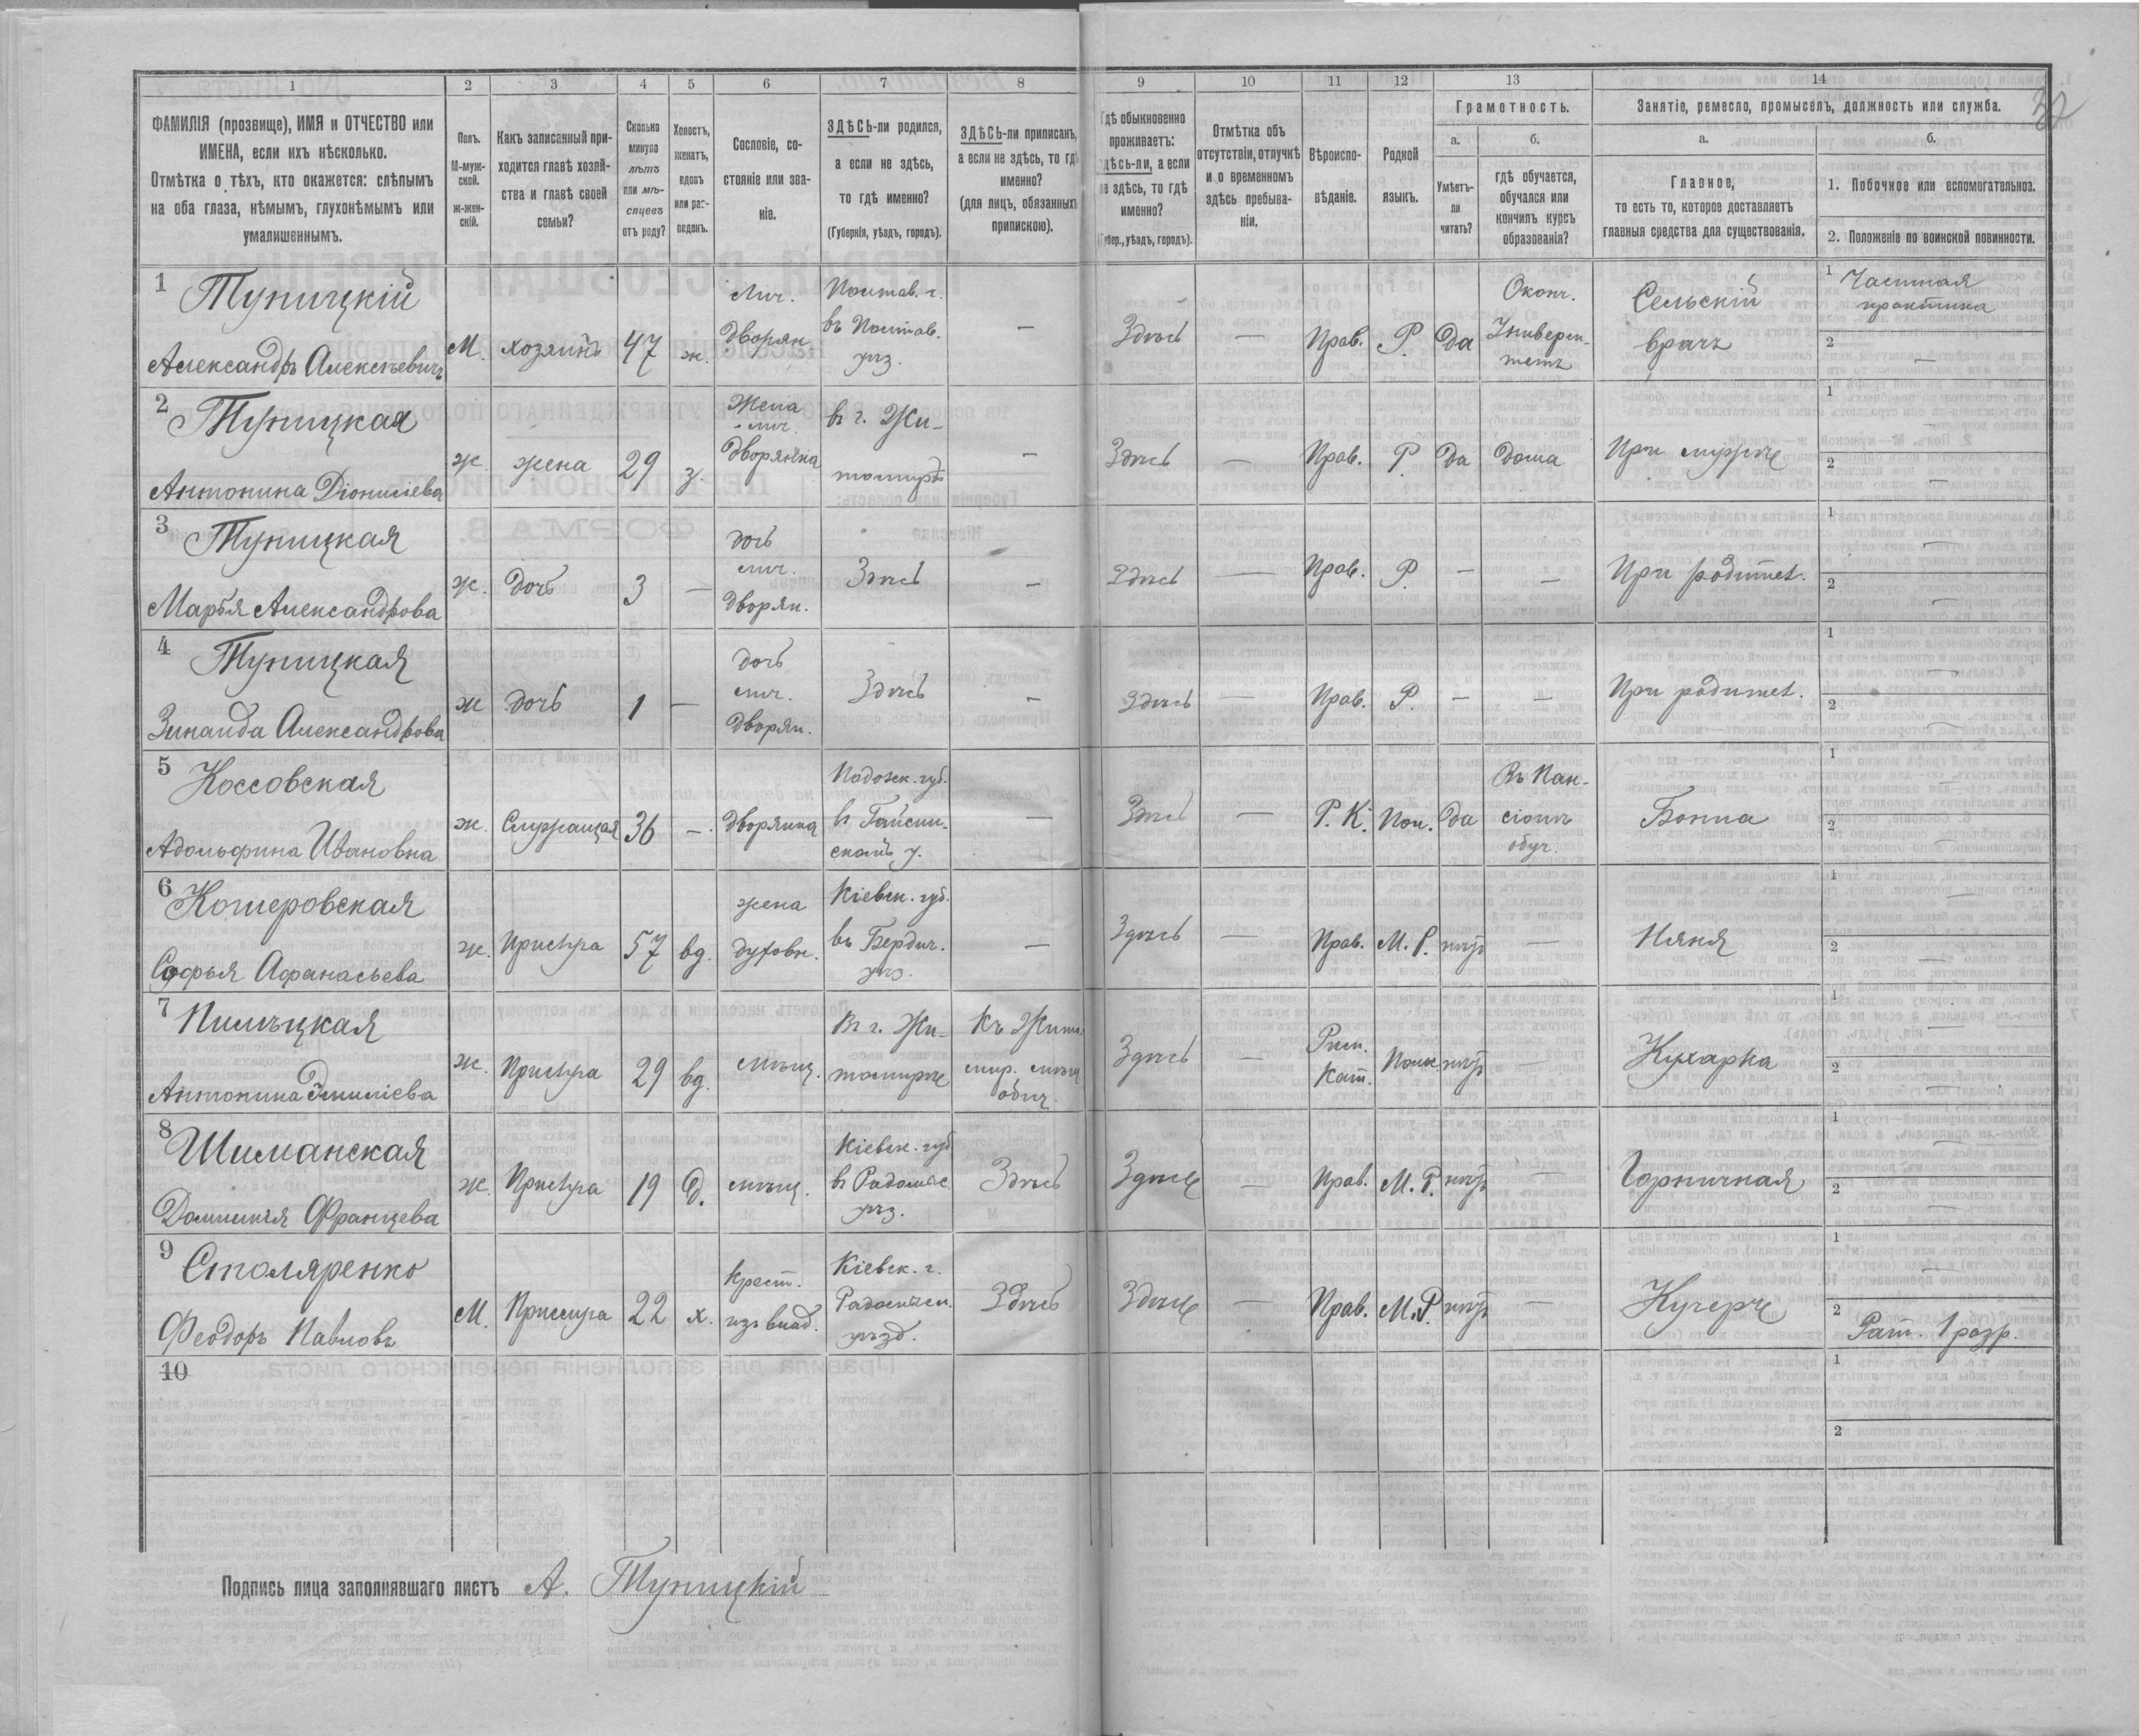 1 2 3 4 5 6 7 8 9 10 11 12 13 14
32
ФАМИЛІЯ (прозвище), ИМЯ и ОТЧЕСТВО или
ИМЕНА, если ихъ нѣсколько.
Отмѣтка о тѣхъ, кто окажется: слѣпымъ
на оба глаза, нѣмымъ, глухонѣмымъ или
умалишеннымъ.
Полъ.
М-муж-
ской.
ж-жен-
скій.
Какъ записанный при-
ходится главѣ хозяй-
ства и главѣ своей
семьи?
Сколько
минуло
лѣтъ
или мѣ-
сяцевъ
отъ роду?
Холостъ,
женатъ,
вдовъ
или раз-
веденъ.
Сословіе, со-
стояніе или зва-
ніе.
ЗДѢСЬ-ли родился,
а если не здѣсь,
то гдѣ именно?
(Губернія, уѣздъ, городъ).
ЗДѢСЬ-ли приписанъ,
а если не здѣсь, то гдѣ
именно?
(для лицъ, обязанныхъ
припискою).
Гдѣ обыкновенно
проживаетъ:
здѣсь-ли, а если
не здѣсь, то гдѣ
именно?
(Губер., уѣздъ, городъ).
Отмѣтка объ
отсутствіи, отлучкѣ
и о временномъ
здѣсь пребыва-
ніи.
Вѣроиспо-
вѣданіе.
Родной
языкъ.
Грамотность.
а.
Умѣетъ-
ли
читать?
б.
гдѣ обучается,
обучался или
кончилъ курсъ
образованія?
Занятіе, ремесло, промыселъ, должность или служба.
а.
Главное,
то есть то, которое доставляетъ
главныя средства для существованія.
б.
1. Побочное или вспомогательноз.
2. Положеніе по воинской повинности.
1
Туницкій
Александръ Алексѣевичъ
М.
хозяинъ
47
ж.
Лич.
дворян.
Полтав. г.
въ Полтав.
уѣз.
—
Здѣсь
—
Прав.
Р.
да
Оконч.
Универси-
тетъ
Сельскій
врачъ
1 Частная
практика
2 —
2
Туницкая
Антонина Діонисіева
ж.
жена
29
з.
Жена
лич.
дворянина
въ г. Жи-
томирѣ
—
Здѣсь
—
Прав.
Р.
да
дома
При мужѣ
1 —
2 —
3
Туницкая
Марья Александрова
ж.
дочь
3
—
дочь
лич.
дворян.
Здѣсь
—
Здѣсь
—
Прав.
Р.
—
—
При родител.
1 —
2 —
4
Туницкая
Зинаида Александрова
ж
дочь
1
—
дочь
лич.
дворян.
Здѣсь
—
Здѣсь
—
Прав.
Р.
—
—
При родител.
1 —
2 —
5
Коссовская
Адольфина Ивановна
ж.
Служащая
36
—.
дворянка
Подоск. губ.
въ Гайсин-
скомъ у.
—
Здѣсь
—
Р. К.
Пол.
да
Въ Пан-
сіонѣ
обуч.
Бонна
1 —
2 —
6
Комеровская
Софья Афанасьева
ж.
Прислуга
57
вд.
жена
духовн.
Кіевск. губ.
въ Бердич.
уѣз.
—
Здѣсь
—
Прав.
М. Р.
нѣтъ
—
Няня
1 —
2 —
7
Антонина Эмиліева
ж.
Прислуга
29
вд.
мѣщ.
Въ г. Жи-
томирѣ
Къ Жито-
мир. мѣщ.
общ.
Здѣсь
—
Рим.
Кат.
Польс.
нѣтъ
—
Кухарка
1 —
2 —
8
Шиманская
Доминикія Францева
ж.
Прислуга
19
д.
мѣщ.
Кіевск. губ
въ Радомыс.
уѣз.
Здѣсь
Здѣсь
—
Прав.
М. Р.
нѣтъ
—
Горничная
1 —
2 —
9
Столяренко
Феодоръ Павловъ
М.
Прислуга
22
х.
Крест.
изъ влад.
Кіевск. г.
Радомысл.
уѣзд.
Здѣсь
Здѣсь
—
Прав.
М. Р.
нѣтъ
—
Кучеръ
1 —
2 Рат. 1 разр.
10
1
2
Подпись лица заполнявшаго листъ А. Туницкій